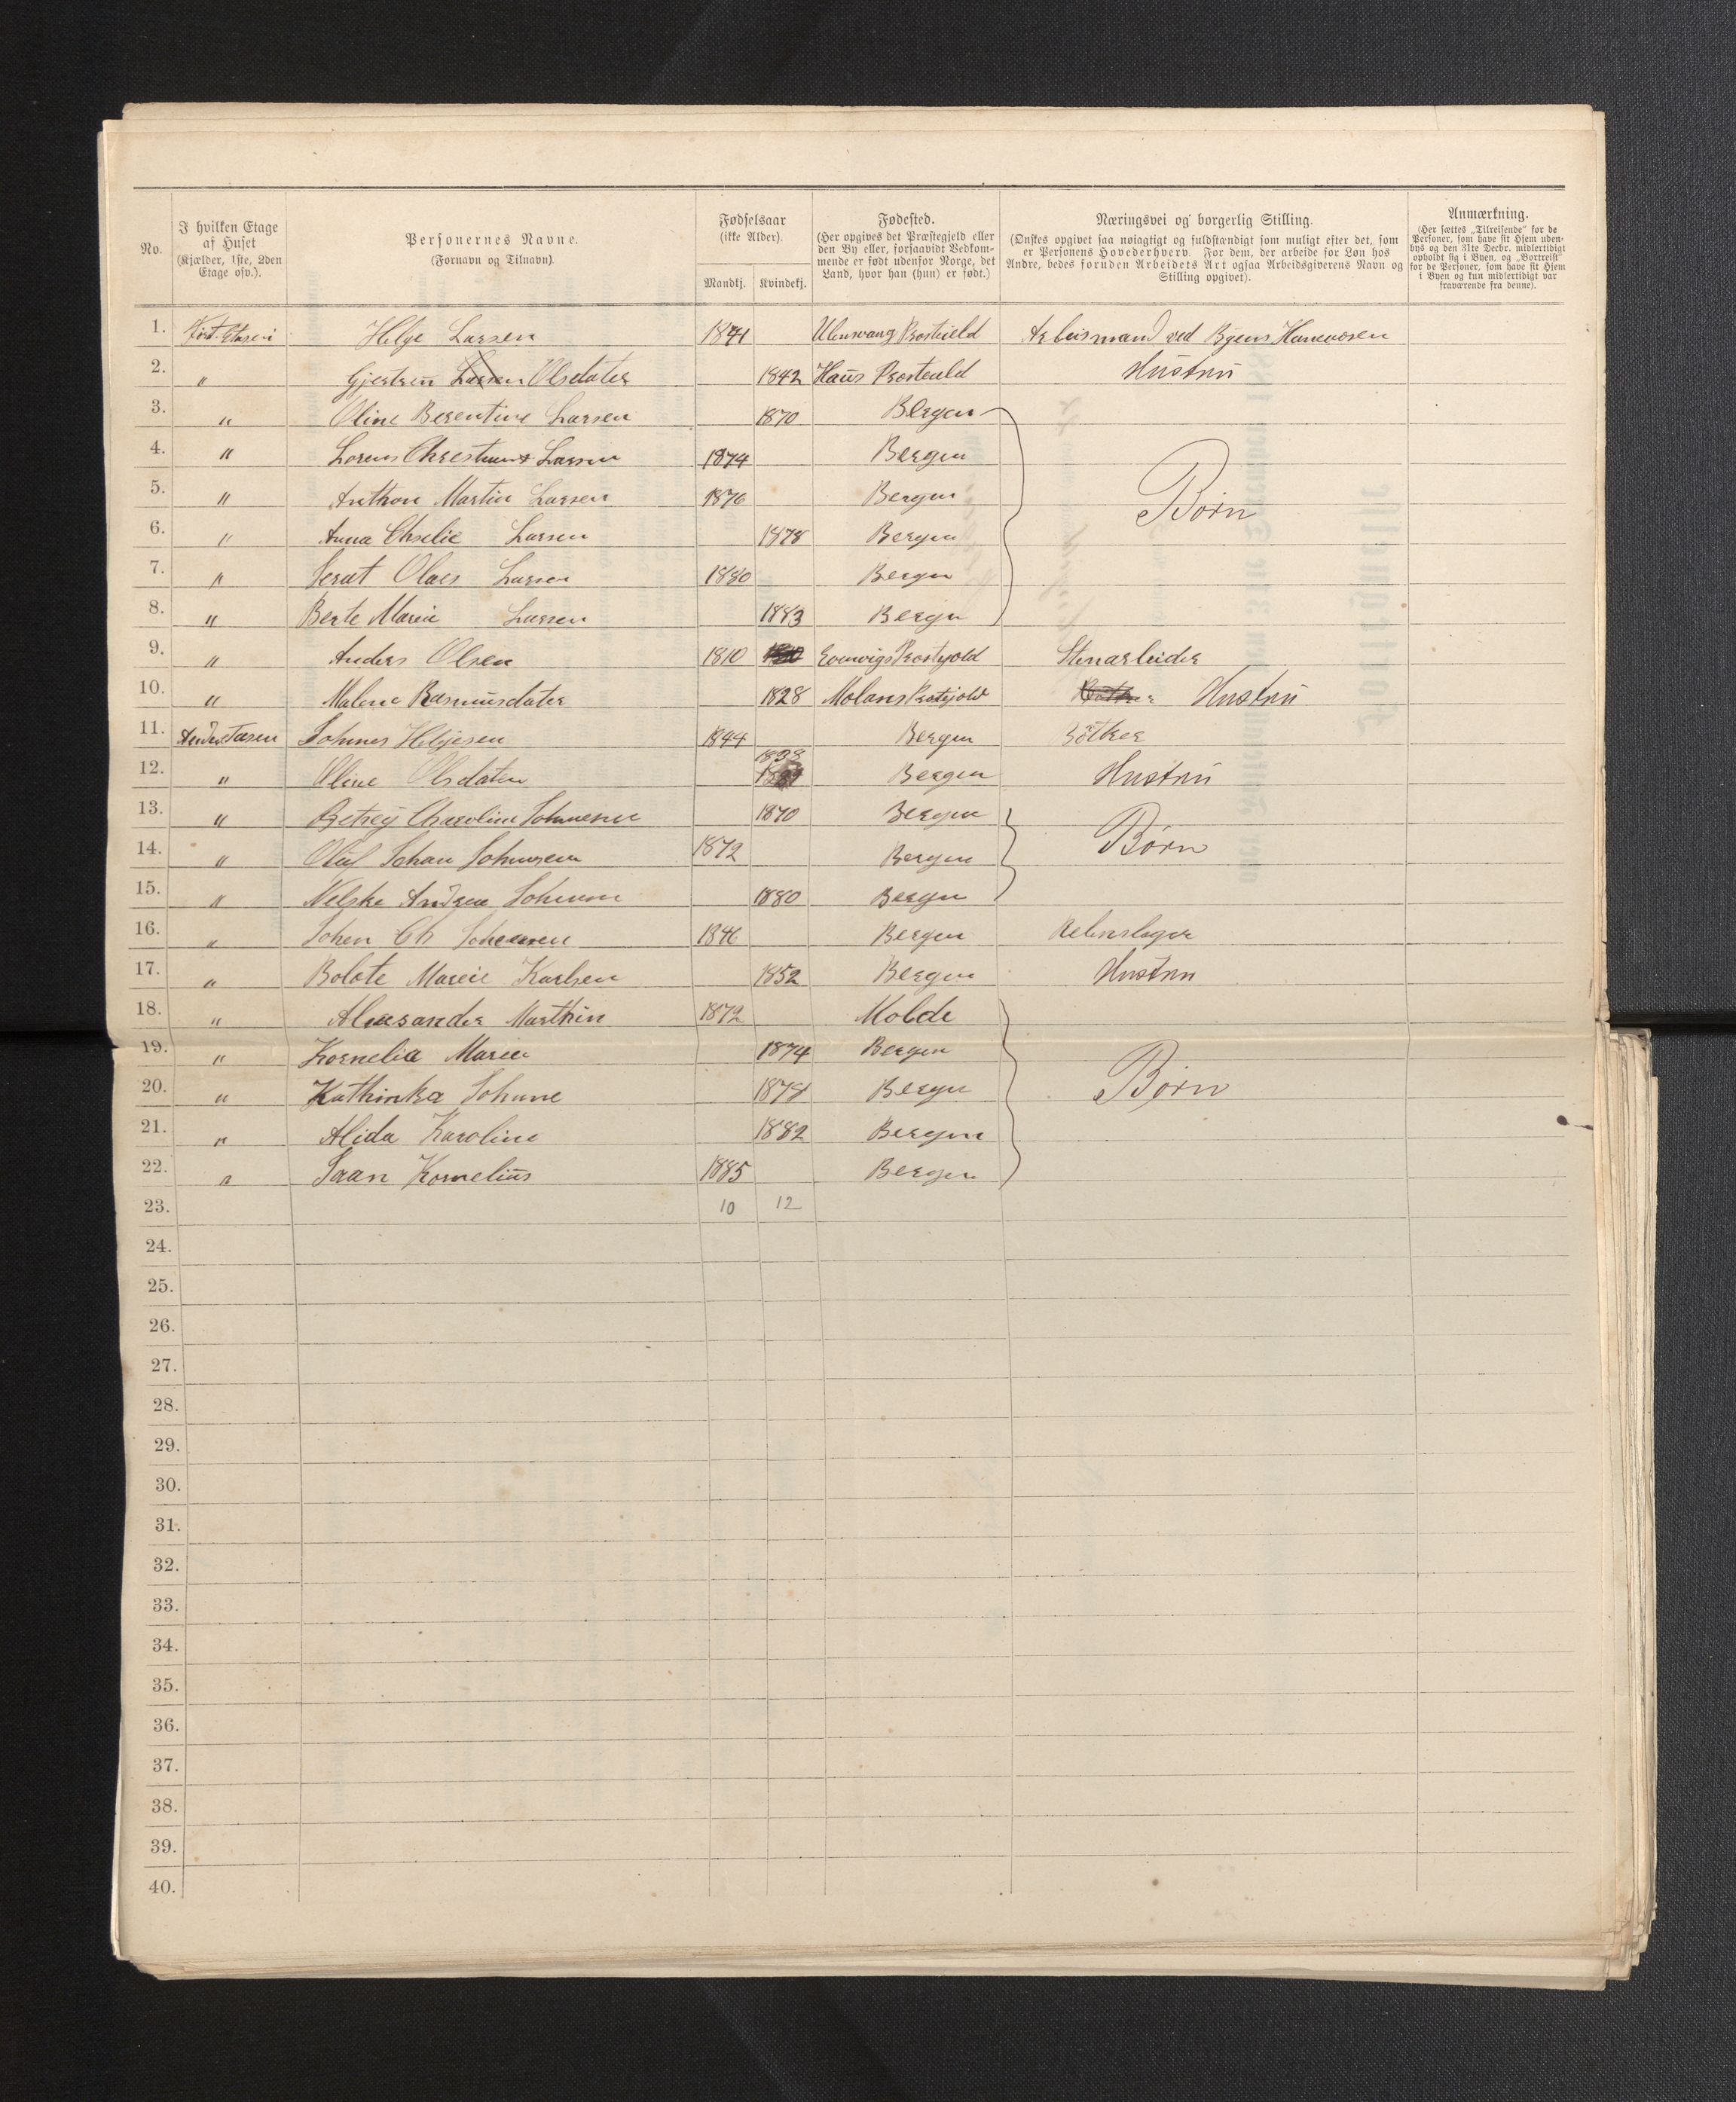 No.
I hvilken Etage
af Huset
(Kjælder, 1ste, 2den
Etage osv.).
Personernes Navne.
(Fornavn og Tilnavn).
Fødselsaar
(ikke Alder).
Mandkj.
Kvindekj.
Fødested.
(Her opgives det Præstegjeld eller
den By eller, forsaavidt Vedkom-
mende er født udenfor Norge, det
Land, hvor han (hun) er født.)
Næringsvei og borgerlig Stilling.
(Ønskes opgivet saa nøiagtigt og fuldstændigt som muligt efter det, som
er Personens Hovederhverv. For dem, der arbeide for Løn hos
Andre, bedes foruden Arbeidets Art ogsaa Arbeidsgiverens Navn og
Stilling opgivet).
Anmærkning.
(Her sættes „Tilreisende“ for de
Personer, som have sit Hjem uden-
bys og den 31te Decbr. midlertidigt
opholdt sig i Byen, og „Bortreist“
for de Personer, som have sit Hjem
i Byen og kun midlertidigt var
fraværende fra denne).
1. Helge Larsen 1841 Ulensvang Arbeismand ved Byens
2. " Larsen Olsdater 1842 Haus Hustru
3. " Oline Berentine Larsen 1870 Bergen
4. " Lorens Larsen 1874 Bergen
5. " Anthon Martin Larsen 1876 Bergen Børn
6. " Anna Larsen 1878 Bergen
7. " Olaes Larsen 1880 Bergen
8. " Berte Marie Larsen 1883 Bergen
9. " Anders Olsen 1810 Stenarbeider
10. " Malene Rasmusdater 1828 Hustru
11. Johnes Helgesen 1844 Bergen Bøtker
12. " Oline Olsdater 1838 Bergen Hustru
13. " Charoline 1870 Bergen
14. " Oluf Johan Johnesen 1872 Bergen Børn
15. " Andrea 1880 Bergen
16. " Johen Ch 1846 Bergen
17. " Bolete Mareie Karlsen 1852 Bergen Hustru
18. " Alexsander Marthin 1872 Molde
19. " Kornelia Marie 1874 Bergen
20. " Kathinka Johane 1878 Bergen Børn
21. " Alida Karoline 1882 Bergen
22. " Kornelius 1885 Bergen
23. 10 12
24.
25.
26.
27.
28.
29.
30.
31.
32.
33.
34.
35.
36.
37.
38.
39.
40.